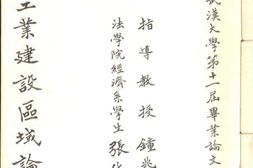 武漢大學第十一屆畢業論文
指導教授 鍾兆
法學院經濟系學生 張
工業建設區域論